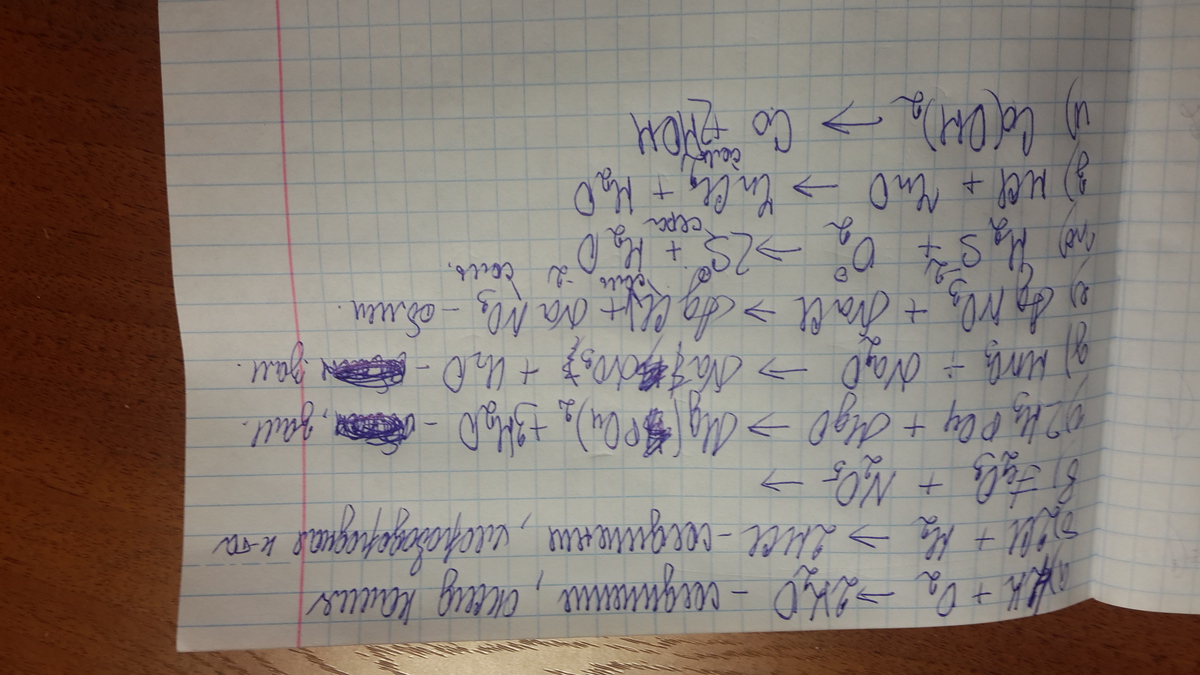 а) 4K + O₂ → 2K₂O - соединение, оксид калия
б) 2Cl + H₂ → 2HCl - соединение, хлороводородная к-та
в) Fe₂O₃ + N₂O₅ →
г) 2H₃PO₄ + MgO → Mg(PO₄)₂ + 3H₂O - зам.
д) HNO₃ + Na₂O → NaNO₃ + H₂O - зам.
е) AgNO₃ + NaCl → AgCl + NaNO₃ - обмен.
соль соль,
ж) H₂S⁻² + O₂⁰ → 2S⁰ + H₂O⁻²
сера
з) HCl + ZnO → ZnCl₂ + H₂O
соль
и) Co(OH)₂ → Co + 2HOH